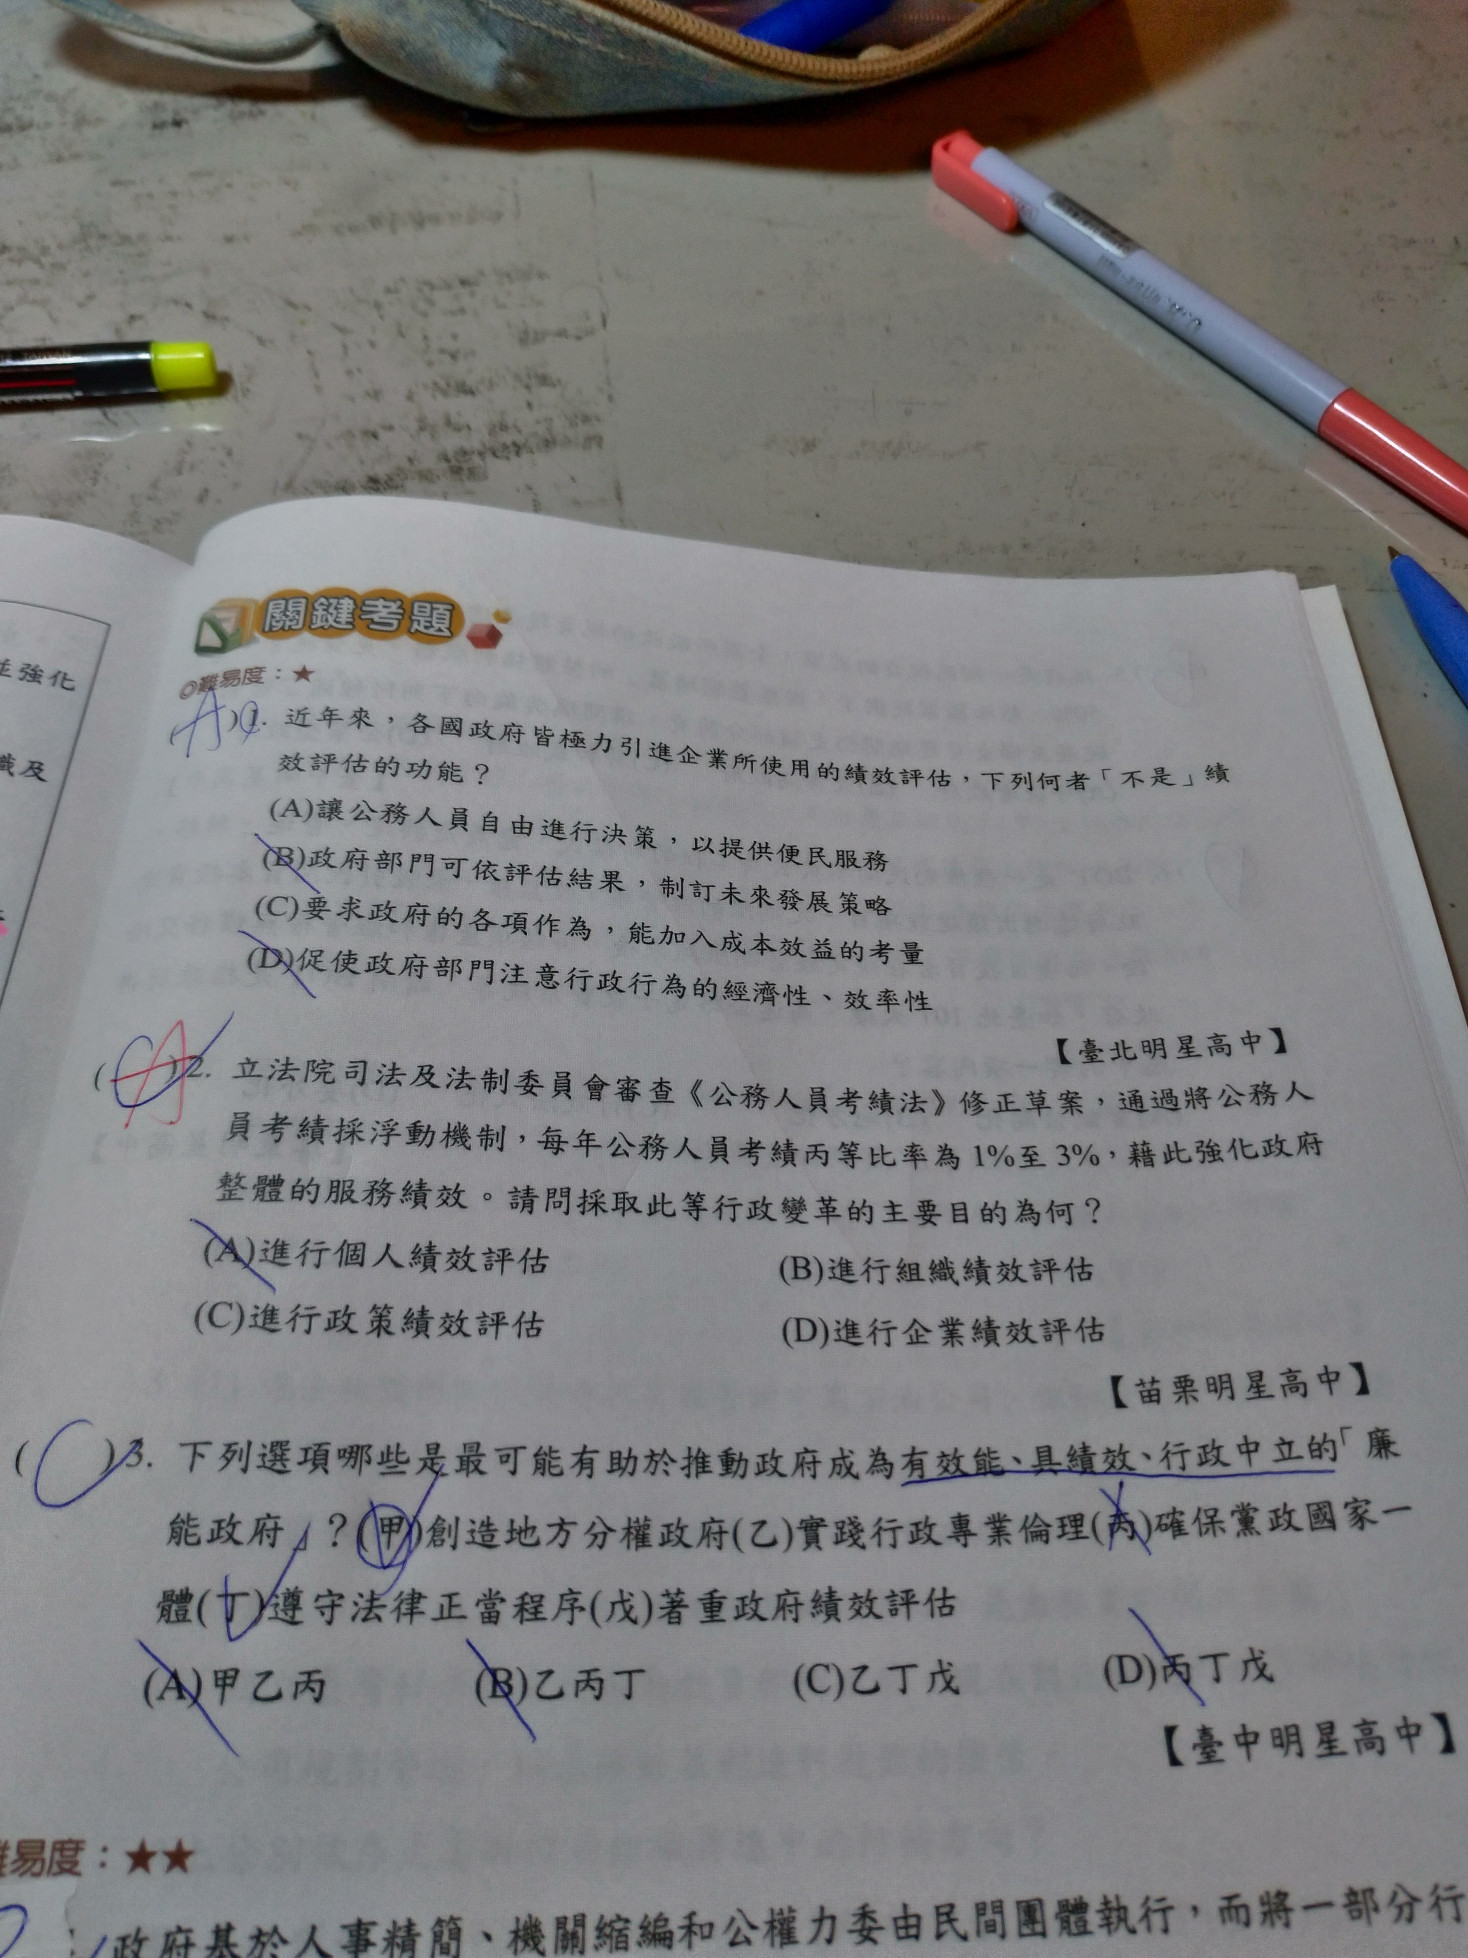 並強化
織及
關鍵考題
◎難易度：★
(A)1. 近年來，各國政府皆極力引進企業所使用的績效評估，下列何者「不是」績
效評估的功能？
(A)讓公務人員自由進行決策，以提供便民服務
(B)政府部門可依評估結果，制訂未來發展策略
(C)要求政府的各項作為，能加入成本效益的考量
(D)促使政府部門注意行政行為的經濟性、效率性
【臺北明星高中】
(A)2. 立法院司法及法制委員會審查《公務人員考績法》修正草案，通過將公務人
員考績採浮動機制，每年公務人員考績丙等比率為 1%至 3%，藉此強化政府
整體的服務績效。請問採取此等行政變革的主要目的為何？
(A)進行個人績效評估 (B)進行組織績效評估
(C)進行政策績效評估 (D)進行企業績效評估
【苗栗明星高中】
(C)3. 下列選項哪些是最可能有助於推動政府成為有效能、具績效、行政中立的「廉
能政府」？(甲)創造地方分權政府(乙)實踐行政專業倫理(丙)確保黨政國家一
體(丁)遵守法律正當程序(戊)著重政府績效評估
(A)甲乙丙 (B)乙丙丁 (C)乙丁戊 (D)丙丁戊
【臺中明星高中】
難易度：★★
政府基於人事精簡、機關縮編和公權力委由民間團體執行，而將一部分行